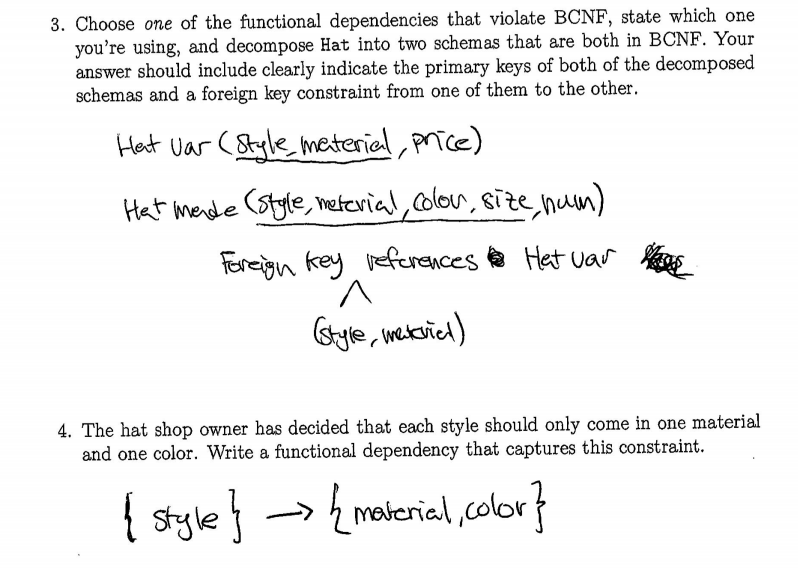 3. Choose one of the functional dependencies that violate BCNF, state which one
you're using, and decompose Hat into two schemas that are both in BCNF. Your
answer should include clearly indicate the primary keys of both of the decomposed
schemas and a foreign key constraint from one of them to the other.
Hat Var (style, material, price)
Hat Made (style, material, colour, size, num)
Foreign key references Hat Var
(style, material)
4. The hat shop owner has decided that each style should only come in one material
and one color. Write a functional dependency that captures this constraint.
{ style } → { material, color }